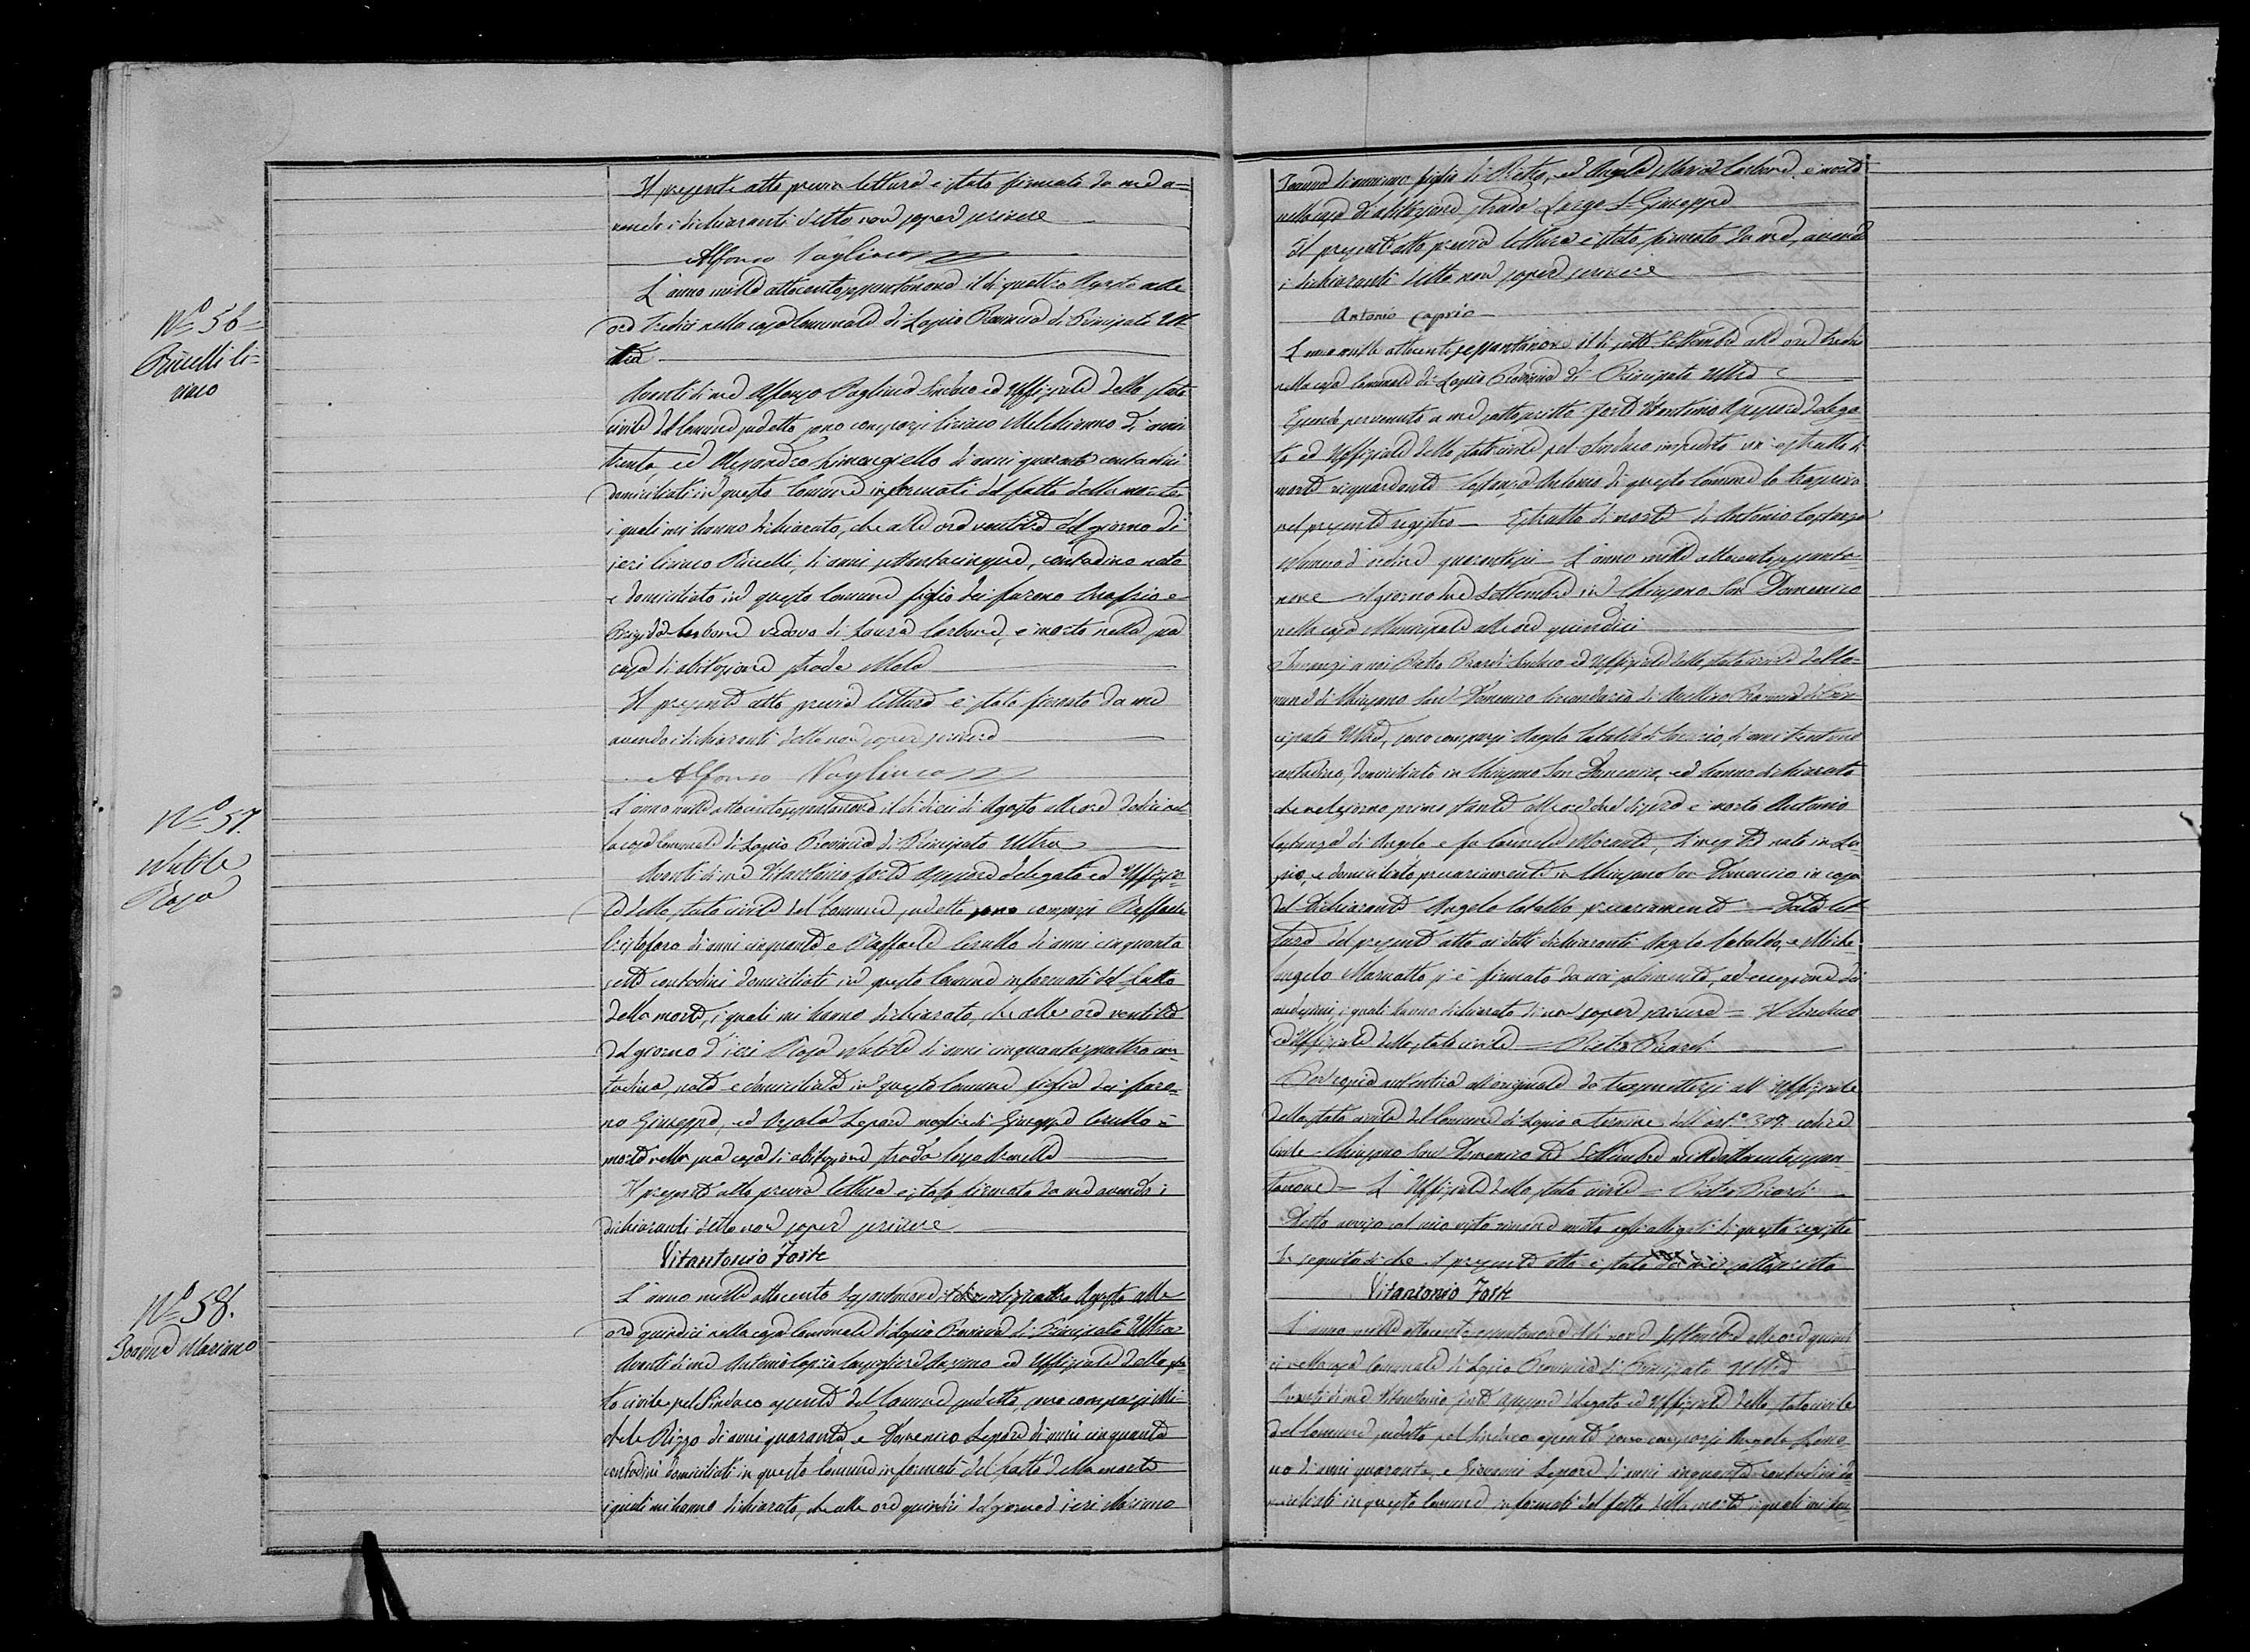 Il presente atto previa lettura è stato firmato da me a=
vendo i dichiaranti detto non saper scrivere
Alfonso Vagliuca
L'anno mille ottocento sessantanove il di quattro Agosto alle
ore tredici nella casa Comunale di Lapio Provincia di Principato Ul-
tra
Nº 56=
Piccelli Ci=
riaco
Avanti di me Alfonso Vagliuca Sindaco ed Uffiziale dello stato
civile del Comune sudetto sono comparsi Ciriaco Melchionno di anni
trenta ed Alesandro Limongiello di anni quaranta contadini
domiciliati in questo Comune informati del fatto della morte
i quali mi hanno dichiarato, che alle ore ventitre del giorno di
jeri Ciriaco Piccelli, di anni settantacinque, contadino nato
e domiciliato in questo Comune figlio dei furono Orafsio e
Brigida Carbone vedovo di Laura Carbone, è morto nella sua
casa di abitazione strada Mola
Il presente atto previa lettura è stato firmato da me
avendo i dichiaranti detto non saper scrivere
Alfonso Vagliuca
Nº 57.
Nutile
Rosa
L'anno mille ottocento sessantanove il di dieci di Agosto alle ore dodici nel=
la casa Comunale di Lapio Provincia di Principato Ultra
Avanti di me Vitantonio Forte Assessore delegato ed Uffizia=
le dello stato civile del Comune sudetto sono comparsi Raffaele
Cristofaro di anni cinquanta e Raffaele Cerullo di anni cinquanta
sette contadini domiciliati in questo Comune informati del fatto
della morte, i quali mi hanno dichiarato, che alle ore ventitre
del giorno d'jeri Rosa Nutile di anni cinquantaquattro con=
tadina, nata e domiciliata in questo Comune figlia dei furo=
no Giuseppe, ed Lepore moglie di Giuseppe Cerullo è
morta nella sua casa di abitazione strada
Il presente atto previa lettura è stato firmato da me avendo i
dichiaranti detto non saper scrivere
Vitantonio Forte
Nº 58.
Joanna Mariano
L'anno mille ottocento sessantanove il di ventiquattro Agosto alle
ore quindici nella casa Comunale di Lapio Provincia di Principato Ultra
Avanti di me Antonio Caprio Consigliere Anziano ed Uffiziale dello sta=
to civile pel Sindaco assente del Comune sudetto, sono comparsi Mi=
chele Rizzo di anni quaranta, e Domenico Lepore di anni cinquanta
contadini domiciliati in questo Comune informati del fatto della morte
i quali mi hanno dichiarato, che alle ore quindici del giorno d'jeri Mariano
Joanna di anni uno figlio di Pietro, ed Angela Maria Carbone, è morto
nella casa di abitazione strada Largo S. Giuseppe
Il presente atto previa lettura è stato firmato da me, avendo
i dichiaranti detto non saper scrivere
Antonio Caprio
L'anno mille ottocento sessantanove il di sette Settembre alle ore tredici
nella casa Comunale di Lapio Provincia di Principato Ultra
Essendo pervenuto a me sottoscritto Forte Vitantonio Assessore delega=
to ed Uffiziale dello stato civile pel Sindaco impedito un estratto di
morte risguardante Costanza Antonio di questo Comune lo trascrivo
nel presente registro — Estratto di morte di Antonio Costanza
Numero d'ordine quarantasei — L'anno mille ottocento sessanta=
nove il giorno tre Settembre in Chiusano San Domenico
nella casa Municipale alle ore quindici
Innanzi a noi Pietro Picardi Sindaco ed Uffiziale dello stato civile del Co=
mune di Chiusano San Domenico Circondario di Avellino Provincia di Prin=
cipato Ultra, sono comparsi Angelo Cataldo di di anni trentuno
contadino, domiciliato in Chiusano San Domenico, ed hanno dichiarato
che nel giorno primo stante alle ore due di sera è morto Antonio
Costanza di Angelo e fu Carmela Morante, di mesi tre nato in La=
pio, e domiciliato precariamente in Chiusano San Domenico in casa
del dichiarante Angelo Cataldo precariamente — Data let=
tura del presente atto ai detti dichiaranti Angelo Cataldo, e Miche
langelo si è firmato da noi solamente, ad eccezione dei
medesimi, i quali hanno dichiarato di non saper scrivere = Il Sindaco
ed Uffiziale dello stato civile = Pietro Picardi
Per copia autentica all'originale da trasmettersi all'Uffiziale
dello stato civile del Comune di Lapio a termine dell'art.º 397 codice
Civile. Chiusano San Domenico tre Settembre mille ottocento sessan=
tanove = L'Uffiziale dello stato civile = Pietro Picardi
Detto avviso col mio visto rimane unito agli allegati di questo registro
In seguito di che il presente atto è stato da me sottoscritto
Vitantonio Forte
L'anno mille ottocento sessantanove il di nove Settembre alle ore quindi=
ci nella casa Comunale di Lapio Provincia di Principato Ultra
Avanti di me Vitantonio Forte Assessore delegato ed Uffiziale dello stato civile
del Comune sudetto pel Sindaco assente sono comparsi Angelo
no di anni quaranta, e Giovanni Lepore di anni cinquanta contadini do=
miciliati in questo Comune informati del fatto della morte i quali mi han=